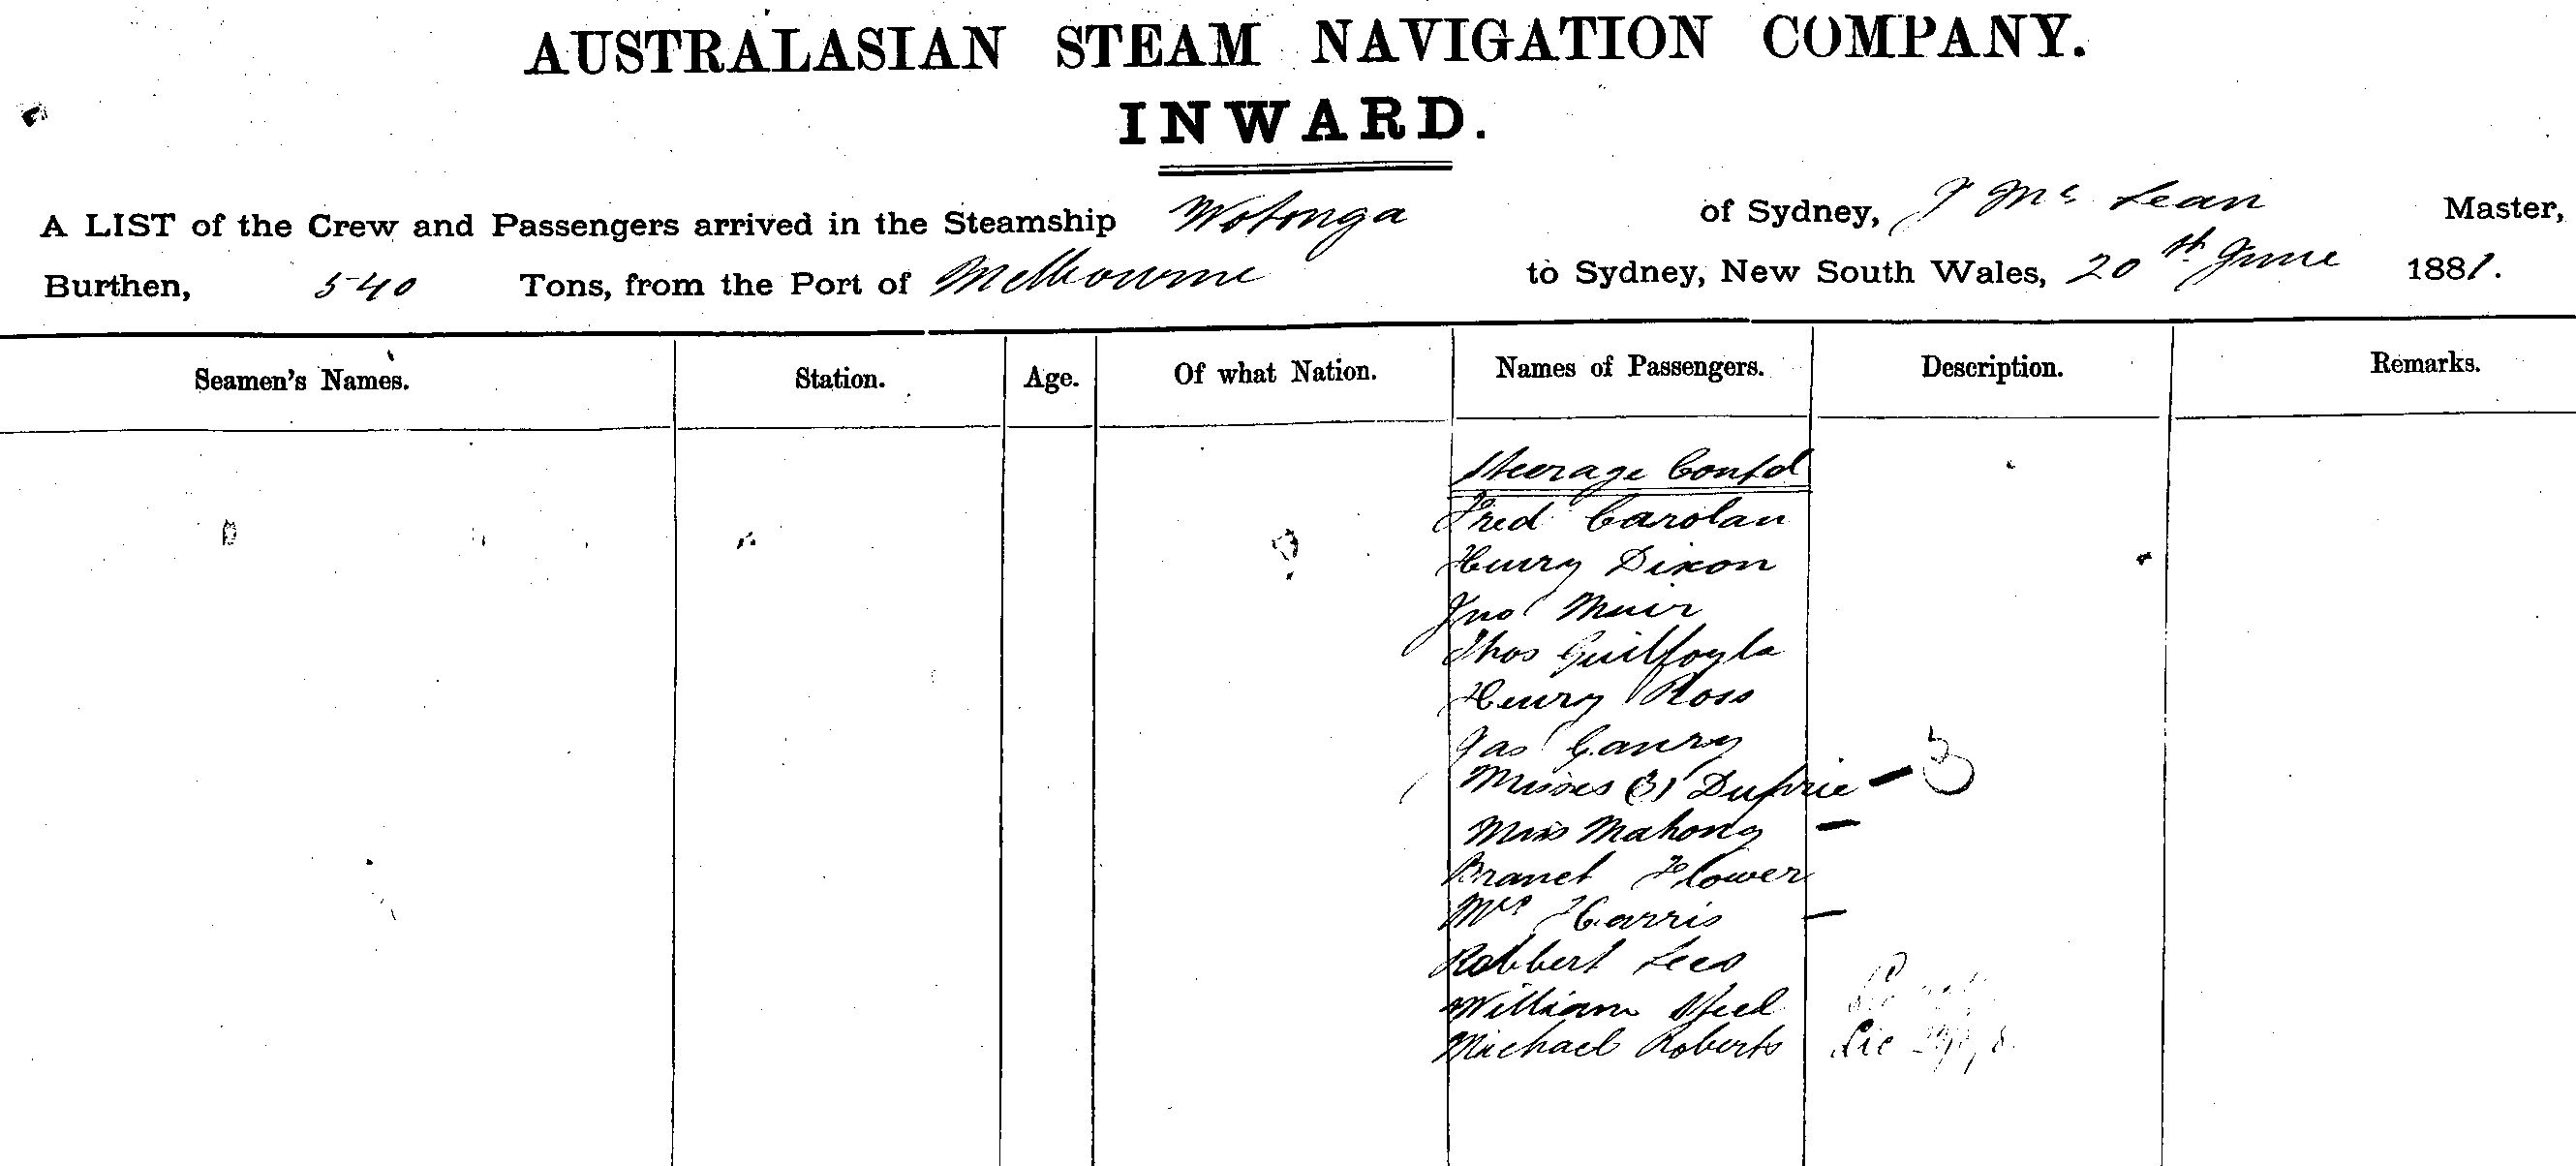 AUSTRALASIAN STEAM NAVIGATION COMPANY.
INWARD.
A LIST of the Crew and Passengers arrived in the Steamship Wotonga of Sydney, J Mc Lean Master,
Burthen, 540 Tons, from the Port of Melbourne to Sydney, New South Wales, 20th June 1881.
Seamen's Names. Station. Age. Of what Nation. Names of Passengers. Description. Remarks.
Steerage Contd
Fred Carolan
Henry Dixon
Jno Muir
Thos Guilfoyle
Henry Ross
Jas Ganry
Misses (3) Duprie — 3
Miss Mahony —
Branet Flower
Mrs Harris —
Robbert Lees
William Steel
Michael Roberts